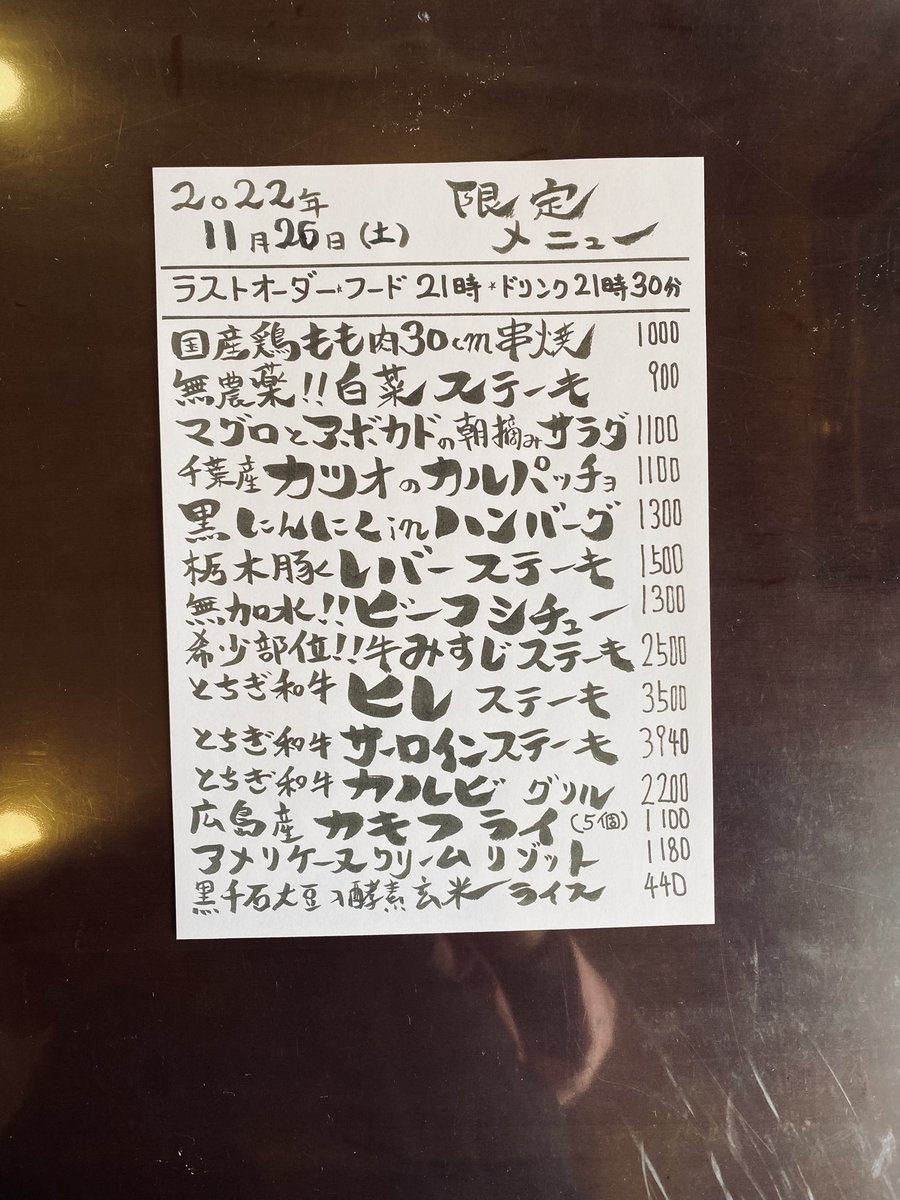 2022年 限定
11月26日(土) メニュー
ラストオーダー*フード21時*ドリンク21時30分
国産鶏もも肉30cm串焼 1000
無農薬!!白菜ステーキ 900
マグロとアボカドの朝摘みサラダ 1100
千葉産カツオのカルパッチョ 1100
黒にんにくinハンバーグ 1300
栃木豚くレバーステーキ 1500
無加水!!ビーフシチュー 1300
希少部位!!牛みすじステーキ 2500
とちぎ和牛ヒレステーキ 3500
とちぎ和牛サーロインステーキ 3940
とちぎ和牛カルビグリル 2200
広島産カキフライ(5個) 1100
アメリケーヌクリームリゾット 1180
黒千石大豆入酵素玄米ライス 440